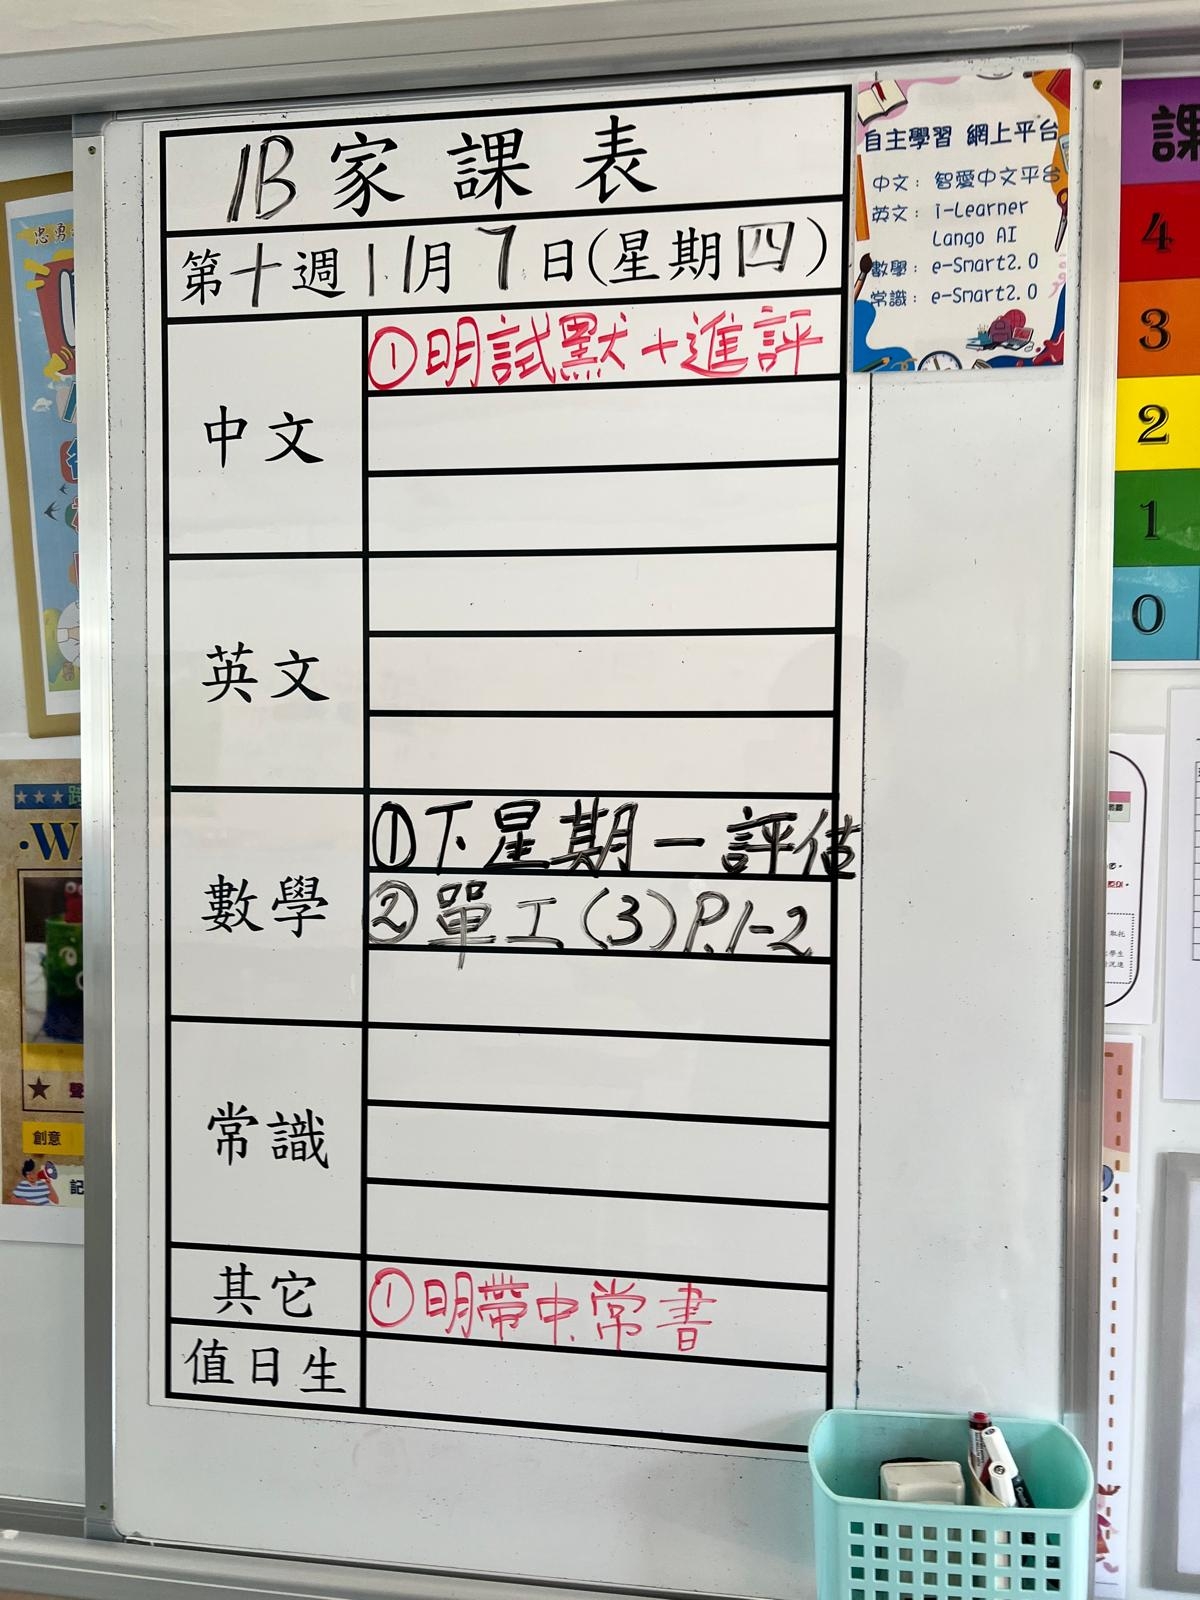 1B家課表
第十週 11月7日(星期四)
中文
①明試默+進評
英文
數學
①下星期一評估
②單工(3)P.1-2
常識
其它
①明帶中.常書
值日生
自主學習 網上平台
中文: 智愛中文平台
英文: i-Learner
Lango AI
數學: e-Smart2.0
常識: e-Smart2.0
課
4
3
2
1
0
忠勇
創意